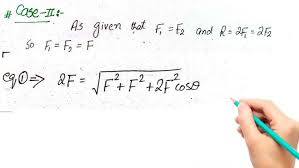 # Case-II:-
As given that F₁ = F₂ and R = 2F₁ = 2F₂
So F₁ = F₂ = F
eq ① ⇒ 2F = √(F² + F² + 2F² cosθ)